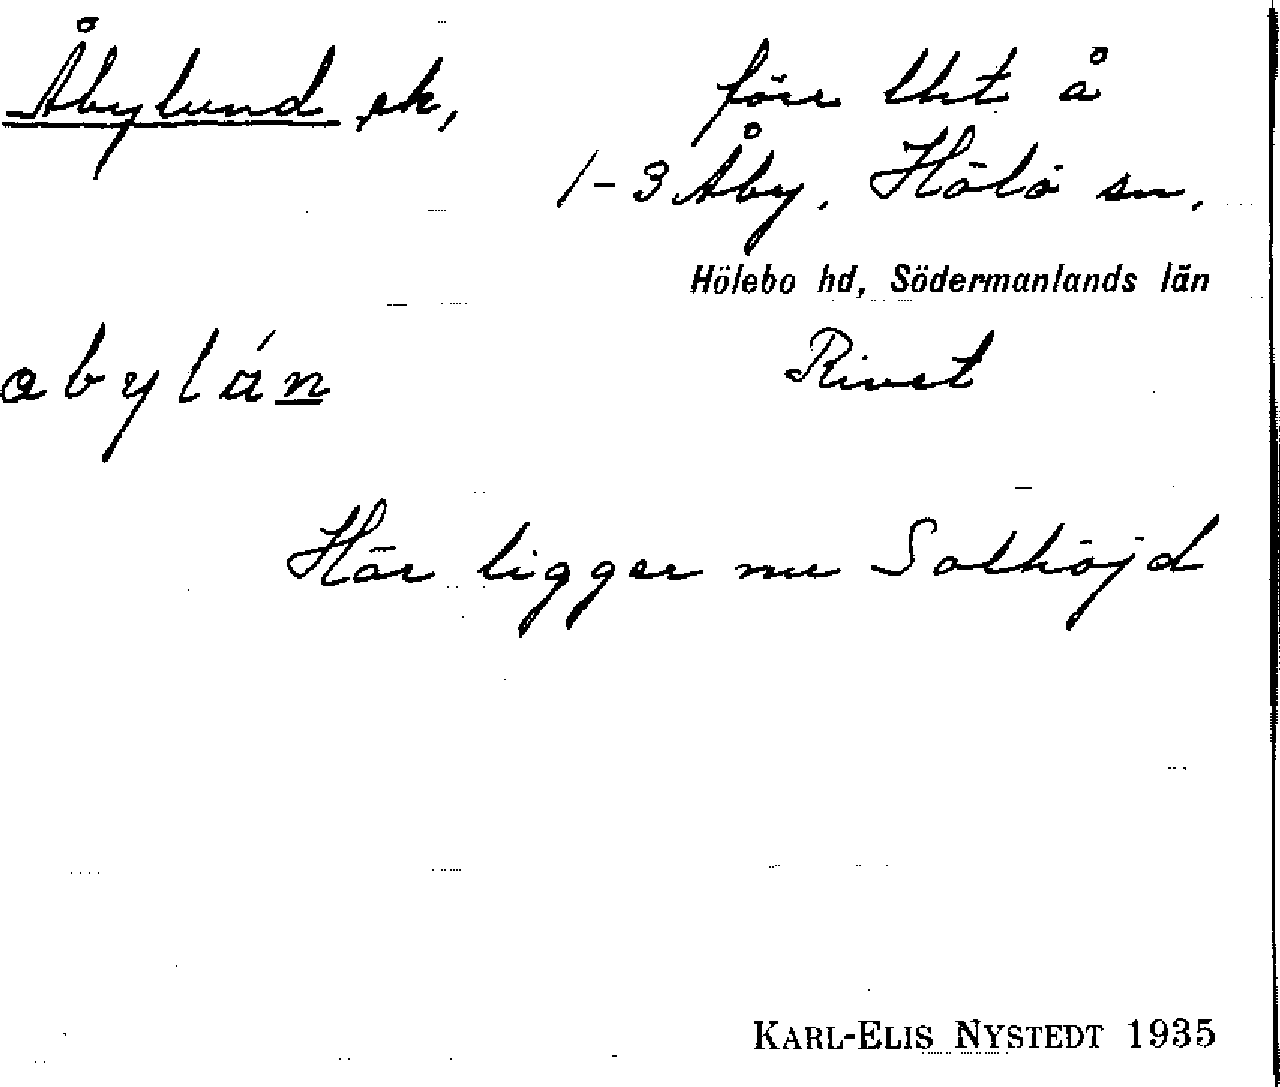 Åbylund ek,
förr lht å
1-3 Åby. Hölö sn.
Hölebo hd, Södermanlands län
abylán
Rivet
Här ligger nu Solhöjd
KARL-ELIS NYSTEDT 1935